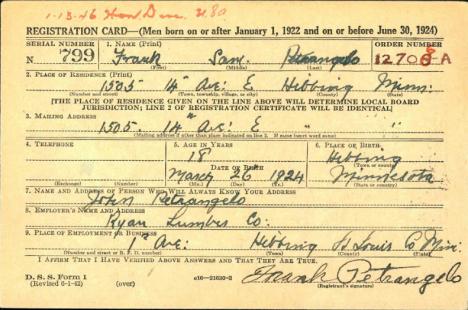 1-15-46 Hon. Disc.
REGISTRATION CARD—(Men born on or after January 1, 1922 and on or before June 30, 1924)
SERIAL NUMBER 1. NAME (Print) ORDER NUMBER
N 799 Frank Sam Petrangelo 12708-A
(First) (Middle) (Last)
2. PLACE OF RESIDENCE (Print)
1505 14th Ave. E Hibbing Minn.
(Number and street) (Town, township, village, or city) (County) (State)
[THE PLACE OF RESIDENCE GIVEN ON THE LINE ABOVE WILL DETERMINE LOCAL BOARD
JURISDICTION; LINE 2 OF REGISTRATION CERTIFICATE WILL BE IDENTICAL]
3. MAILING ADDRESS
1505 14th Ave. E " "
[Mailing address if other than place indicated on line 2. If same insert word same]
4. TELEPHONE 5. AGE IN YEARS 6. PLACE OF BIRTH
18 Hibbing
DATE OF BIRTH (Town or county)
March 26 1924 Minnesota
(Exchange) (Number) (Mo.) (Day) (Yr.) (State or country)
7. NAME AND ADDRESS OF PERSON WHO WILL ALWAYS KNOW YOUR ADDRESS
John Petrangelo
8. EMPLOYER'S NAME AND ADDRESS
Ryan Lumber Co.
9. PLACE OF EMPLOYMENT OR BUSINESS
1st Ave. Hibbing St Louis Co Min.
(Number and street or R. F. D. number) (Town) (County) (State)
I AFFIRM THAT I HAVE VERIFIED ABOVE ANSWERS AND THAT THEY ARE TRUE.
D. S. S. Form 1 16—21630-2 Frank Petrangelo
(Revised 6-1-42) (over) (Registrant's signature)